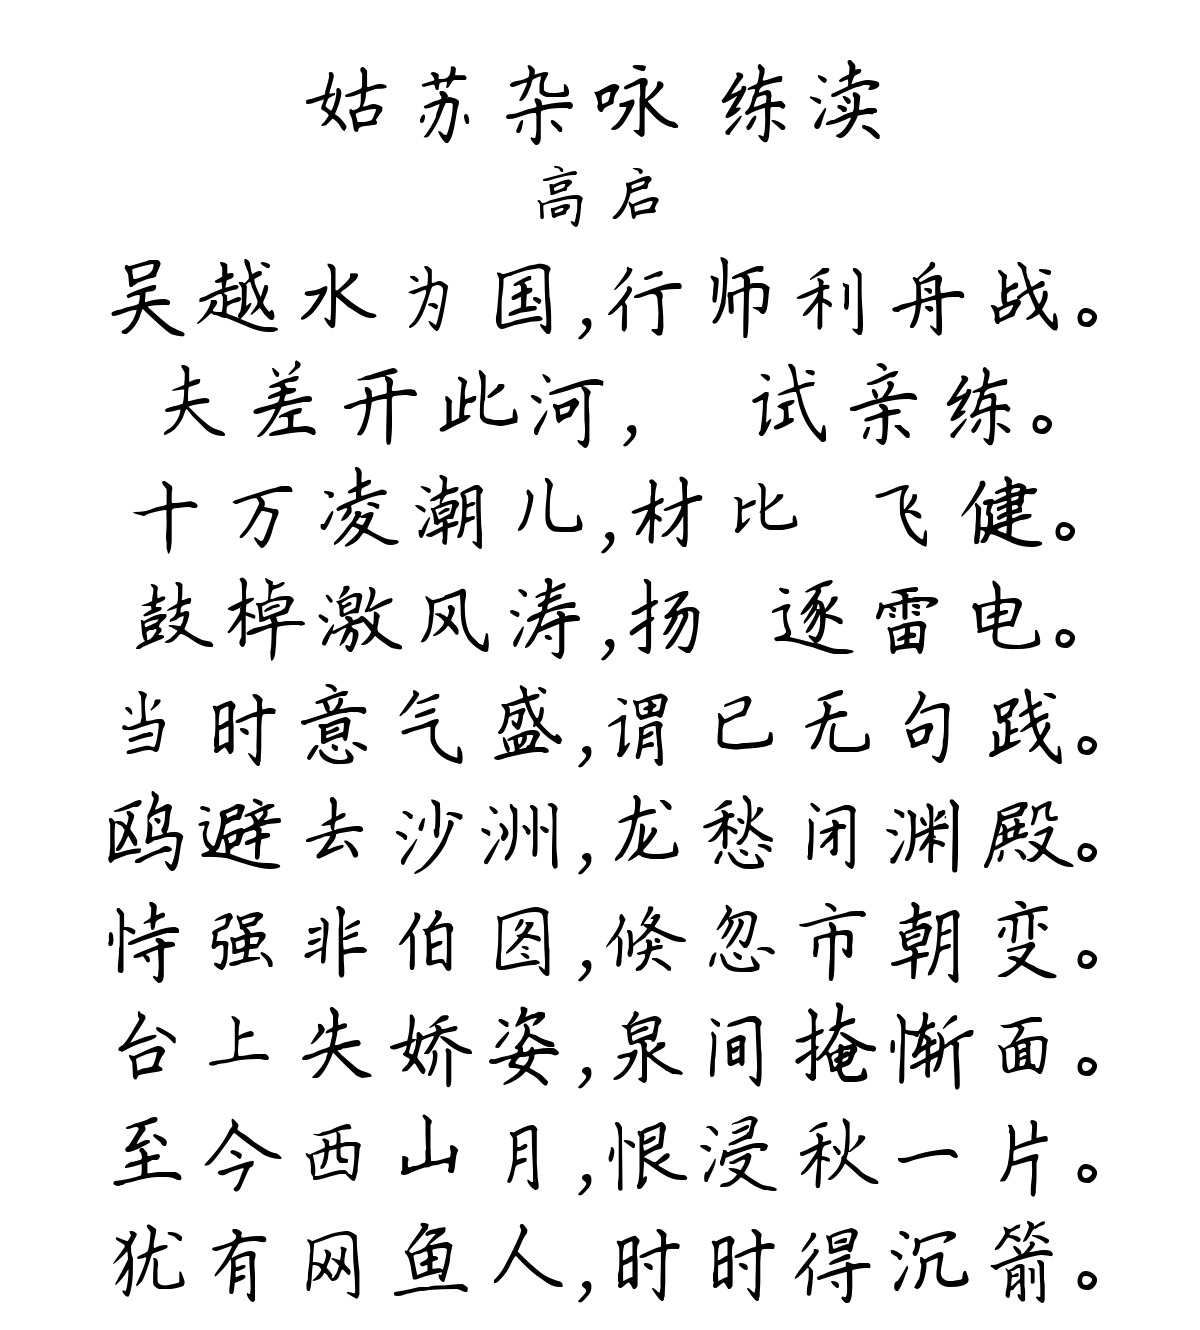 姑苏杂咏 练渎
高启
吴越水为国,行师利舟战。
夫差开此河, 试亲练。
十万凌潮儿,材比 飞健。
鼓棹激风涛,扬 逐雷电。
当时意气盛,谓已无句践。
鸥避去沙洲,龙愁闭渊殿。
恃强非伯图,倏忽市朝变。
台上失娇姿,泉间掩惭面。
至今西山月,恨浸秋一片。
犹有网鱼人,时时得沉箭。